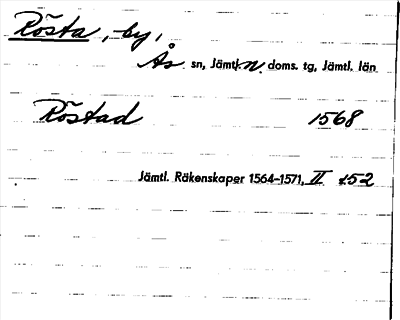 Rösta, by,
Ås sn, Jämtl. n. doms. tg, Jämtl. län
Röstad 1568
Jämtl. Räkenskaper 1564-1571, II s. 52